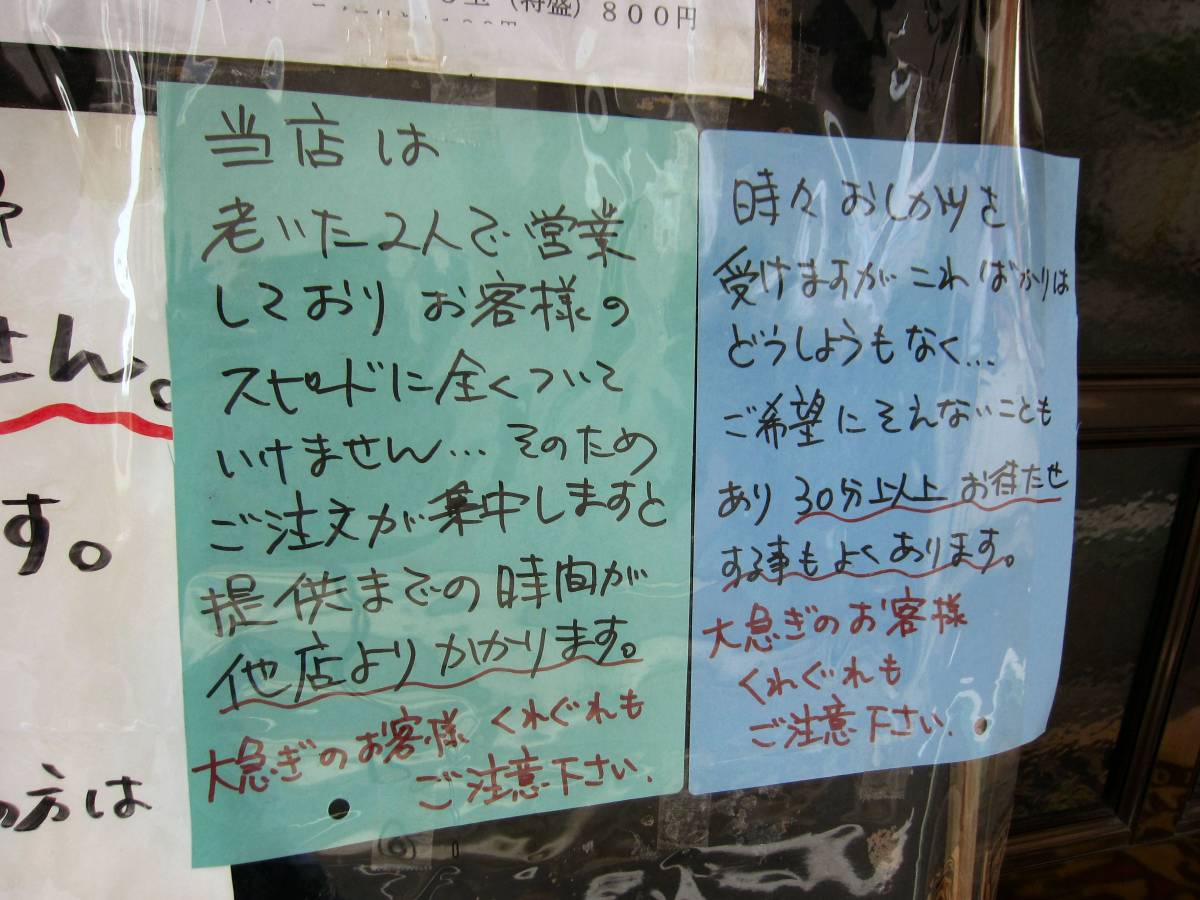 (特盛) 800円
せん。
す。
方は
当店は
老いた2人で営業
しており お客様の
スピードに全くついて
いけません… そのため
ご注文が集中しますと
提供までの時間が
他店よりかかります。
大急ぎのお客様 くれぐれも
ご注意下さい.
時々 おしかりを
受けますが これ ばかりは
どうしようもなく…
ご希望にそえないことも
あり 30分以上 お待たせ
する事も よくあります。
大急ぎのお客様
くれぐれも
ご注意下さい.